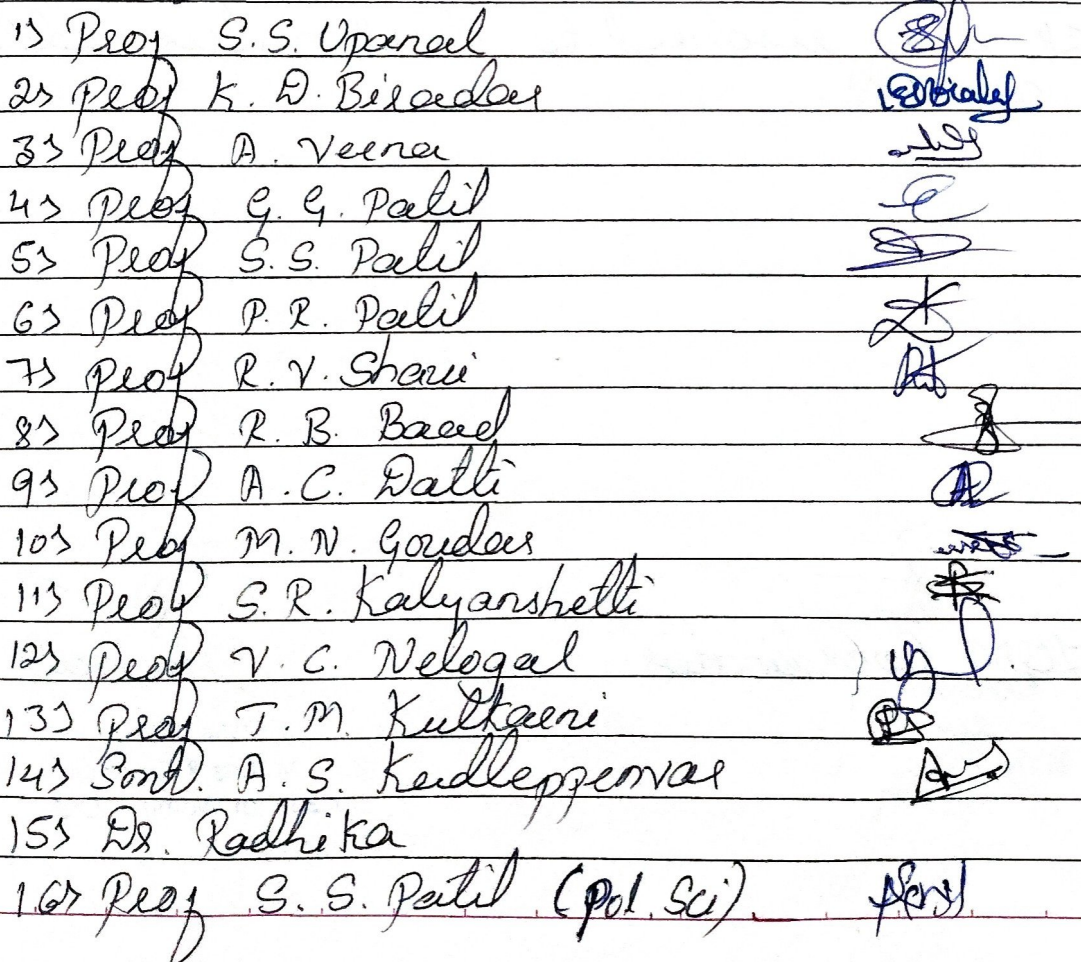 1) Prof S.S. Upanal
2) Prof K. D. Biradar
3) Prof A. Veena
4) Prof G. G. Patil
5) Prof S.S. Patil
6) Prof P.R. Patil
7) Prof R.V. Sharu
8) Prof R.B. Barad
9) Prof A.C. Datti
10) Prof M.N. Goudar
11) Prof S.R. Kalyanshetti
12) Prof V.C. Nelogal
13) Prof T.M. Kulkarni
14) Smt. A.S.
15) Dr. Radhika
16) Prof S.S. Patil (Pol. Sci)